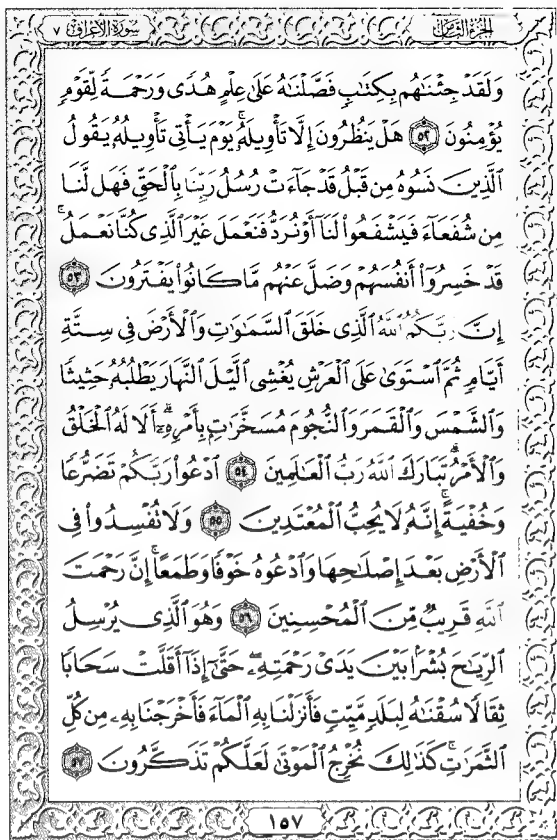 الجزء الثامن
سورة الأعراف ٧
وَلَقَدْ جِئْنَٰهُم بِكِتَٰبٍ فَصَّلْنَٰهُ عَلَىٰ عِلْمٍ هُدًى وَرَحْمَةً لِّقَوْمٍ
يُؤْمِنُونَ ٥٢ هَلْ يَنظُرُونَ إِلَّا تَأْوِيلَهُۥ ۚ يَوْمَ يَأْتِى تَأْوِيلُهُۥ يَقُولُ
ٱلَّذِينَ نَسُوهُ مِن قَبْلُ قَدْ جَآءَتْ رُسُلُ رَبِّنَا بِٱلْحَقِّ فَهَل لَّنَا
مِن شُفَعَآءَ فَيَشْفَعُوا۟ لَنَآ أَوْ نُرَدُّ فَنَعْمَلَ غَيْرَ ٱلَّذِى كُنَّا نَعْمَلُ ۚ
قَدْ خَسِرُوٓا۟ أَنفُسَهُمْ وَضَلَّ عَنْهُم مَّا كَانُوا۟ يَفْتَرُونَ ٥٣
إِنَّ رَبَّكُمُ ٱللَّهُ ٱلَّذِى خَلَقَ ٱلسَّمَٰوَٰتِ وَٱلْأَرْضَ فِى سِتَّةِ
أَيَّامٍ ثُمَّ ٱسْتَوَىٰ عَلَى ٱلْعَرْشِ يُغْشِى ٱلَّيْلَ ٱلنَّهَارَ يَطْلُبُهُۥ حَثِيثًا
وَٱلشَّمْسَ وَٱلْقَمَرَ وَٱلنُّجُومَ مُسَخَّرَٰتٍۭ بِأَمْرِهِۦٓ ۗ أَلَا لَهُ ٱلْخَلْقُ
وَٱلْأَمْرُ ۗ تَبَارَكَ ٱللَّهُ رَبُّ ٱلْعَٰلَمِينَ ٥٤ ٱدْعُوا۟ رَبَّكُمْ تَضَرُّعًا
وَخُفْيَةً ۚ إِنَّهُۥ لَا يُحِبُّ ٱلْمُعْتَدِينَ ٥٥ وَلَا تُفْسِدُوا۟ فِى
ٱلْأَرْضِ بَعْدَ إِصْلَٰحِهَا وَٱدْعُوهُ خَوْفًا وَطَمَعًا ۚ إِنَّ رَحْمَتَ
ٱللَّهِ قَرِيبٌ مِّنَ ٱلْمُحْسِنِينَ ٥٦ وَهُوَ ٱلَّذِى يُرْسِلُ
ٱلرِّيَٰحَ بُشْرًۢا بَيْنَ يَدَىْ رَحْمَتِهِۦ ۖ حَتَّىٰٓ إِذَآ أَقَلَّتْ سَحَابًا
ثِقَالًا سُقْنَٰهُ لِبَلَدٍ مَّيِّتٍ فَأَنزَلْنَا بِهِ ٱلْمَآءَ فَأَخْرَجْنَا بِهِۦ مِن كُلِّ
ٱلثَّمَرَٰتِ ۚ كَذَٰلِكَ نُخْرِجُ ٱلْمَوْتَىٰ لَعَلَّكُمْ تَذَكَّرُونَ ٥٧
١٥٧